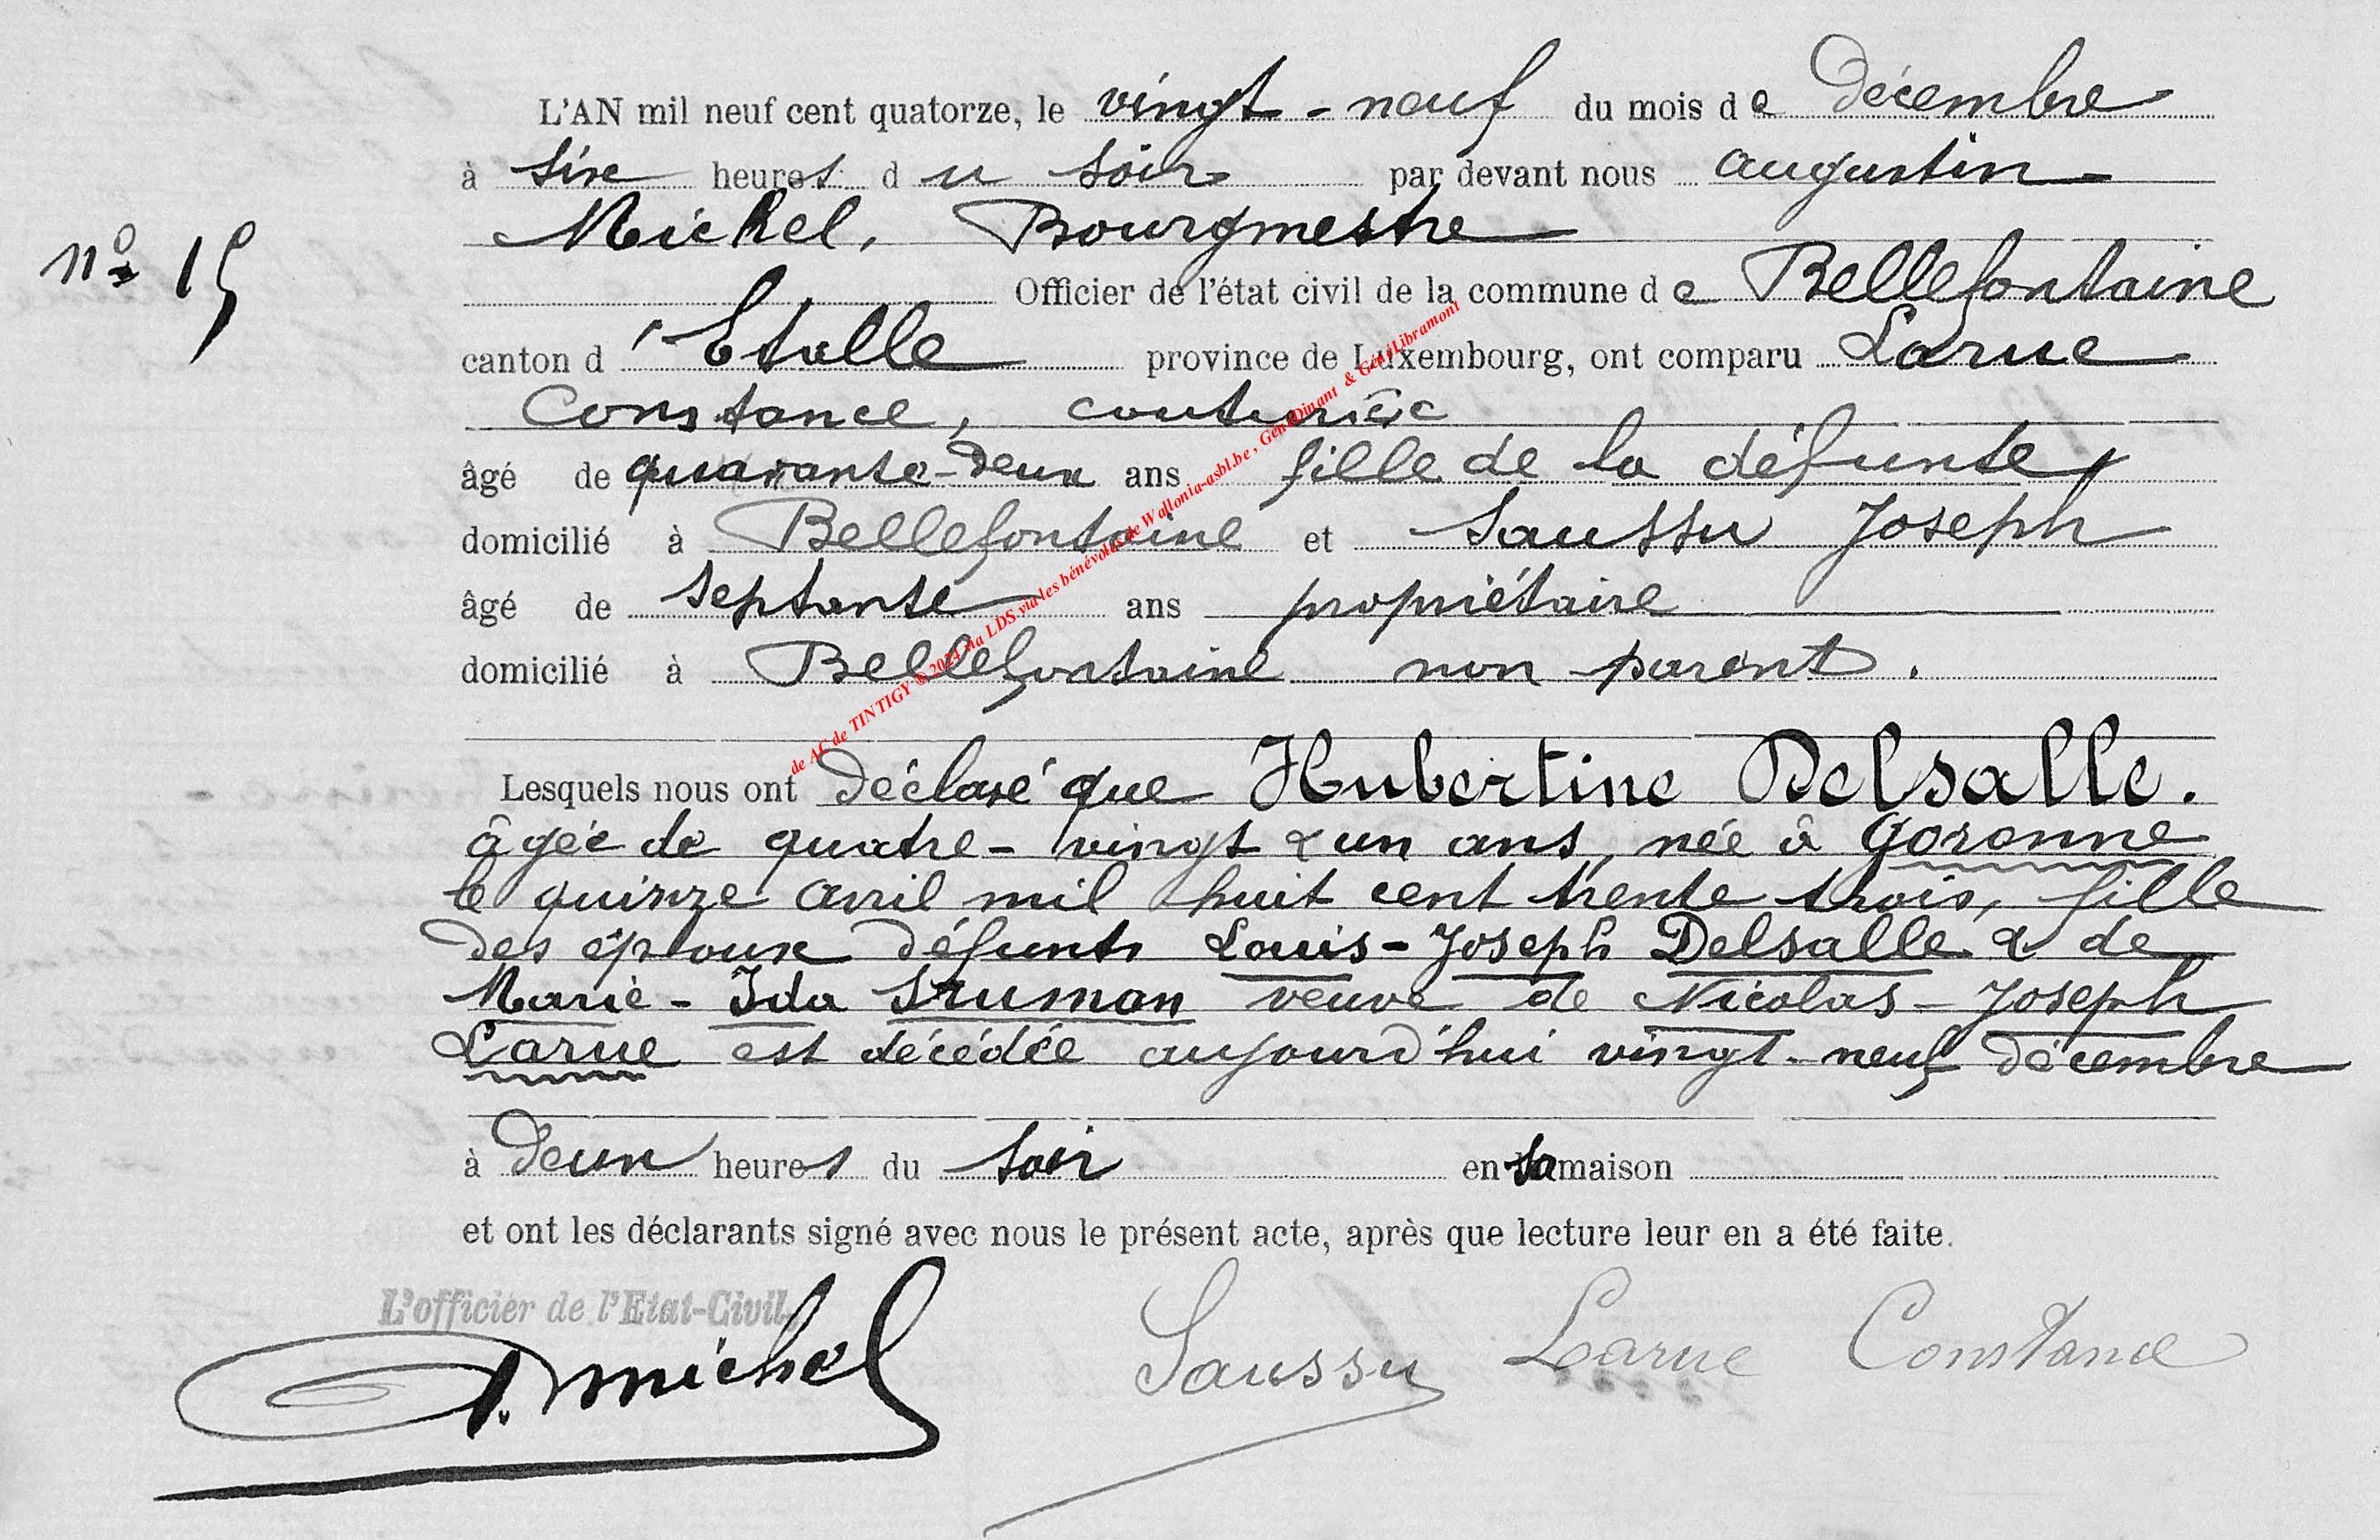 L'AN mil neuf cent quatorze, le vingt-neuf du mois de Décembre
à six heures du soir par devant nous Augustin
Michel, Bourgmestre
nº 15
Officier de l'état civil de la commune de Bellefontaine
canton d'Etalle province de Luxembourg, ont comparu Larue
Constance, couturière
âgé de quarante-deux ans fille de la défunte,
domicilié à Bellefontaine et Saussu Joseph
âgé de septante ans propriétaire
domicilié à Bellefontaine non parent.
de AC de TINTIGY © 2024 via LDS via les bénévoles de Wallonia-asbl.be, GénéDinant & GénéLibramont
Lesquels nous ont déclaré que Hubertine Delsalle.
âgée de quatre-vingt & un ans, née à Goronne
le quinze avril mil huit cent trente trois, fille
des époux défunts Louis-Joseph Delsalle & de
Marie-Ida Sruman veuve de Nicolas-Joseph
Larue est décédée aujourd'hui vingt-neuf décembre
à deux heures du soir en sa maison
et ont les déclarants signé avec nous le présent acte, après que lecture leur en a été faite.
L'officier de l'Etat-Civil,
A. Michel Saussu Larue Constance